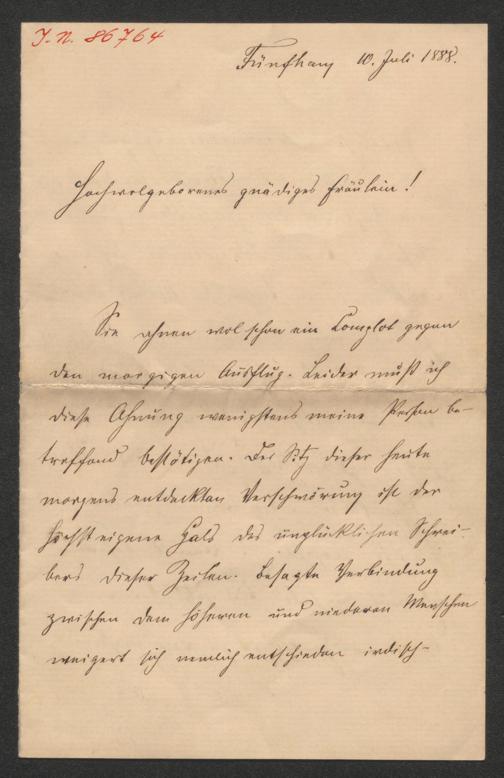 J. N. 86764
Fünfhaus 10. Juli 1888.
Hochwolgeborenes gnädiges Fräulein!
Sie ahnen wol schon ein Complot gegen
den morgigen Ausflug. Leider muß ich
diese Ahnung wenigstens meine Person be-
treffend bestätigen. Der Sitz dieser heute
morgens entdeckten Verschwörung ist der
höchst eigene Hals des unglücklichen Schrei-
bers dieser Zeilen. Besagte Verbindung
zwischen dem höheren und niederen Menschen
weigert sich nemlich entschieden irdisch-